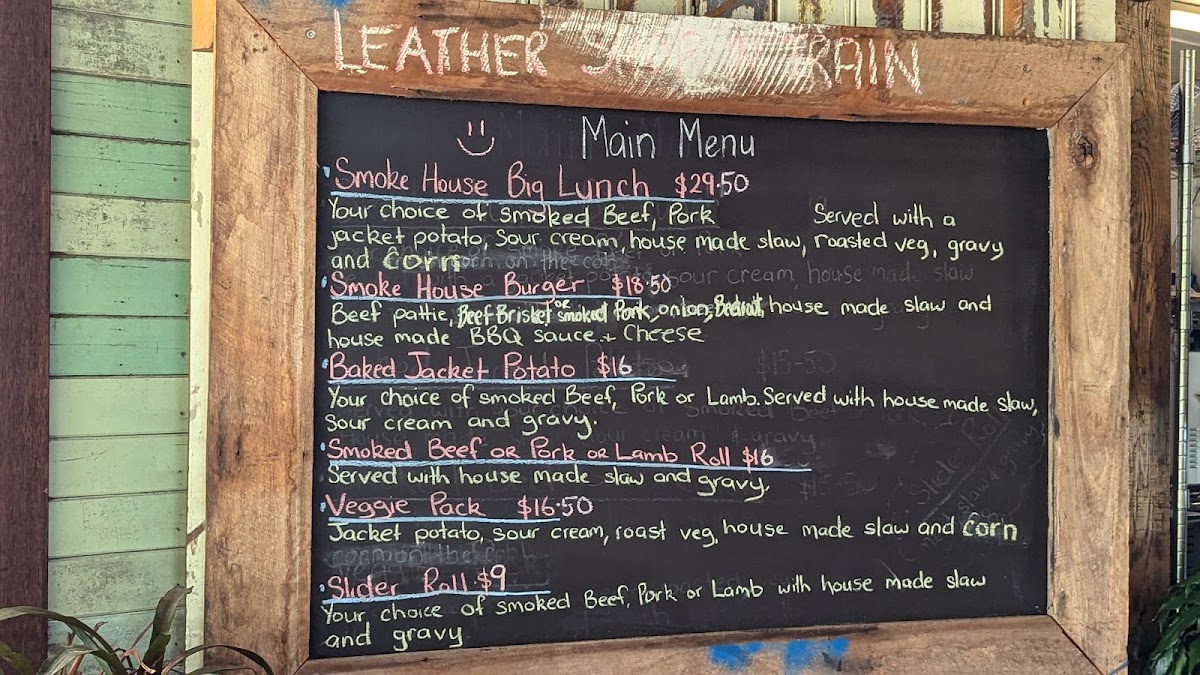 LEATHER TRAIN
Main Menu
Smoke House Big Lunch $29.50
Your choice of smoked Beef, Pork Served with a
jacket potato, sour cream, house made slaw, roasted veg, gravy
and corn
Smoke House Burger $18.50
Beef pattie, Beef Brisket or smoked Pork, onion, Beetroot, house made slaw and
house made BBQ sauce + Cheese
Baked Jacket Potato $16
Your choice of smoked Beef, Pork or Lamb. Served with house made slaw,
sour cream and gravy.
Smoked Beef or Pork or Lamb Roll $16
Served with house made slaw and gravy.
Veggie Pack $16.50
Jacket potato, sour cream, roast veg, house made slaw and corn
Slider Roll $9
Your choice of smoked Beef, Pork or Lamb with house made slaw
and gravy